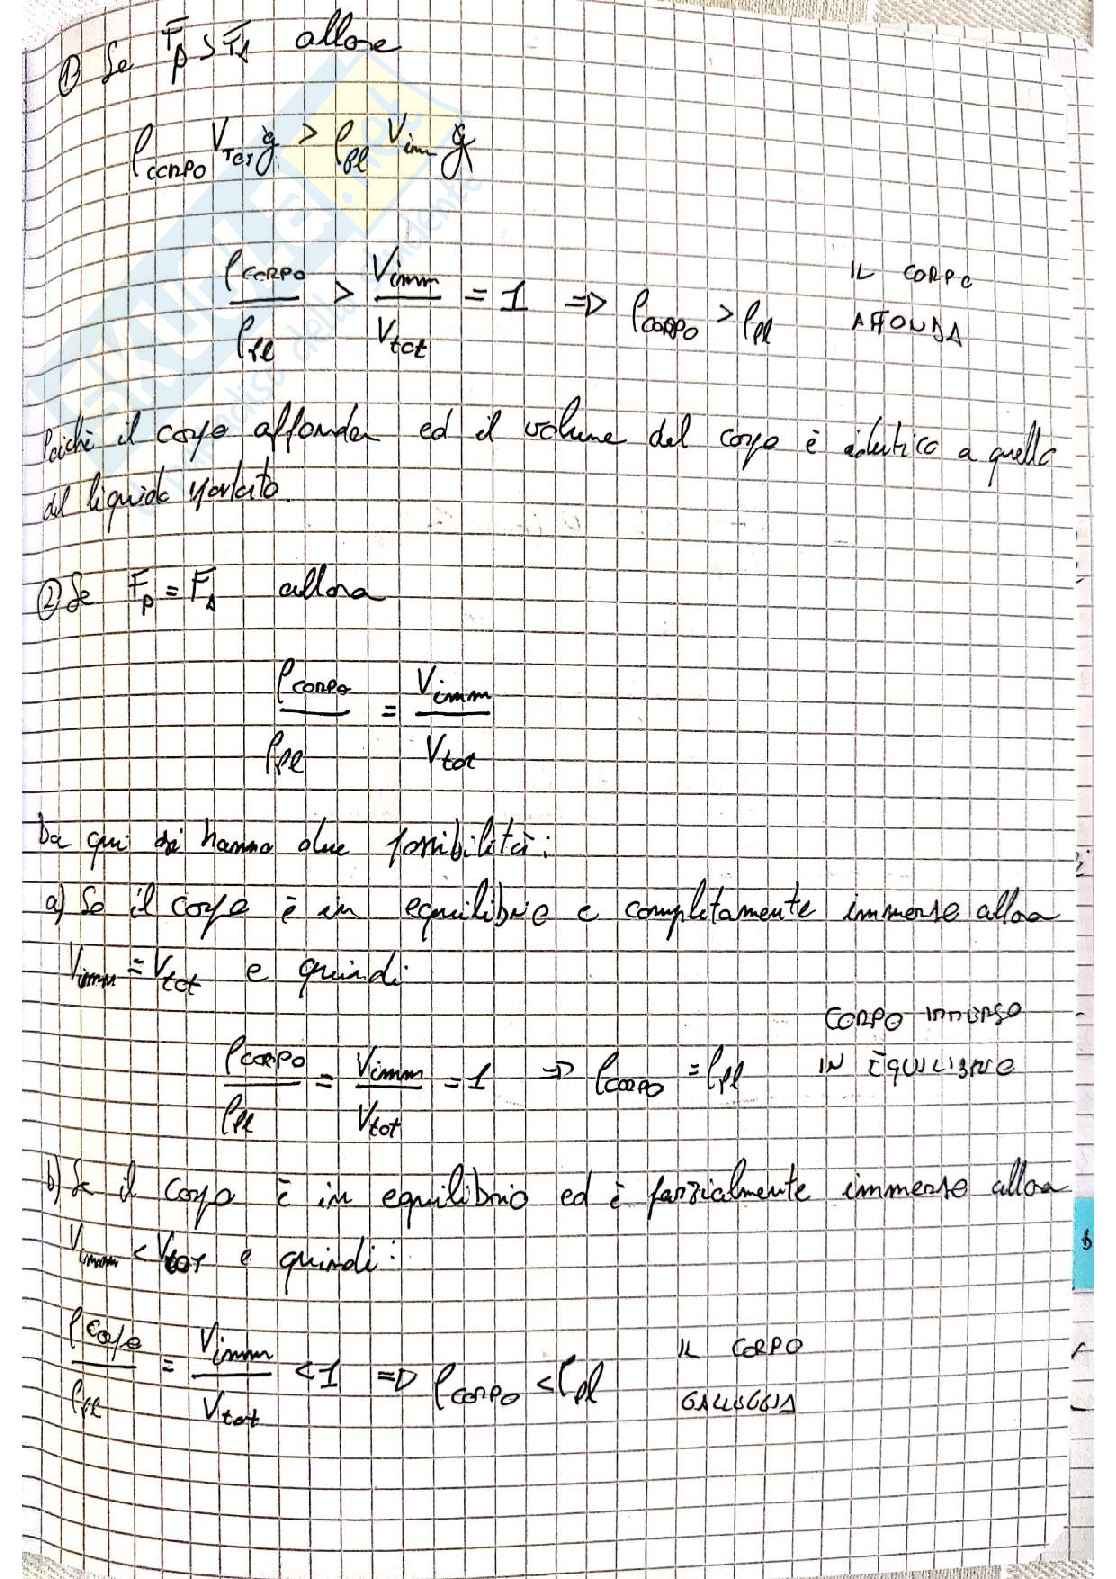 1) Se Fp > FA allora
ρcorpo Vtot g > ρfl Vimm g
ρcorpo / ρfl > Vimm / Vtot = 1 => ρcorpo > ρfl IL CORPO AFFONDA
Poiché il corpo affonda ed il volume del corpo è identico a quello
del liquido spostato.
2) Se Fp = FA allora
ρcorpo / ρfl = Vimm / Vtot
Da qui si hanno due possibilità:
a) Se il corpo è in equilibrio e completamente immerso allora
Vimm = Vtot e quindi:
ρcorpo / ρfl = Vimm / Vtot = 1 => ρcorpo = ρfl CORPO IMMERSO IN EQUILIBRIO
b) Se il corpo è in equilibrio ed è parzialmente immerso allora
Vimm < Vtot e quindi:
ρcorpo / ρfl = Vimm / Vtot < 1 => ρcorpo < ρfl IL CORPO GALLEGGIA